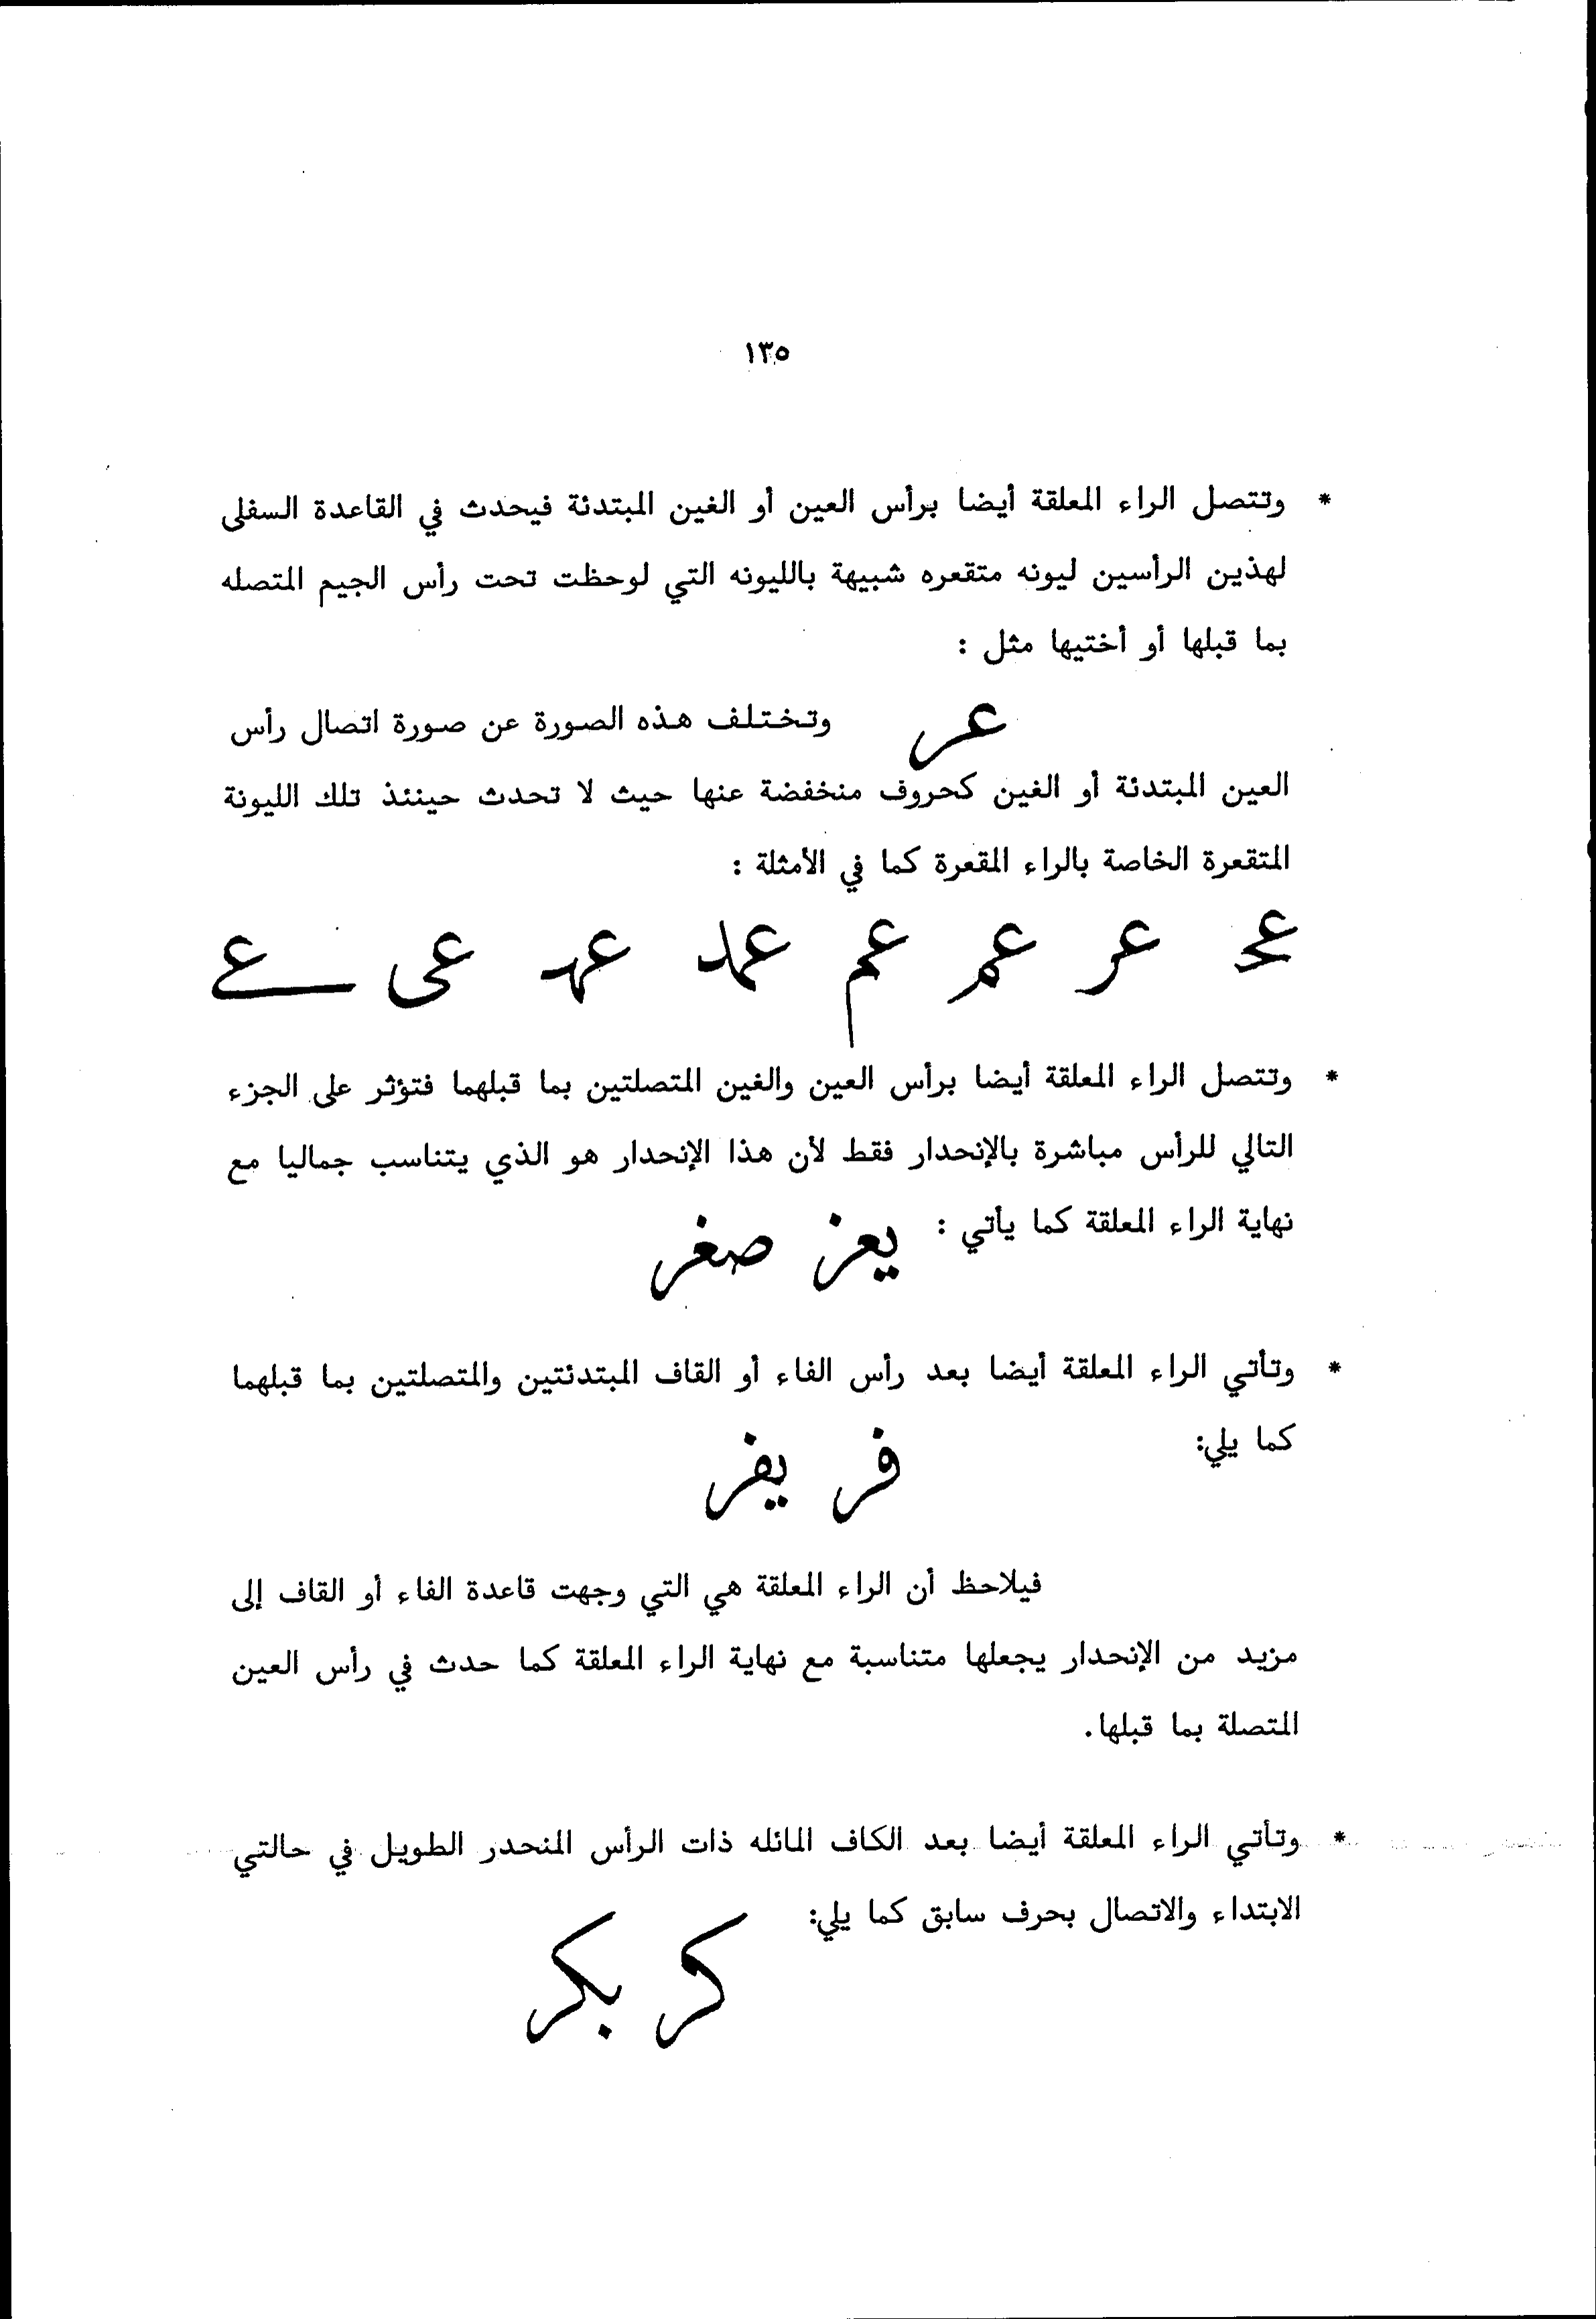 ١٣٥
* وتتصل الراء المعلقة أيضا برأس العين أو الغين المبتدئة فيحدث في القاعدة السفلى
لهذين الرأسين ليونه متقعره شبيهة بالليونه التي لوحظت تحت رأس الجيم المتصله
بما قبلها أو أختيها مثل :
عر وتختلف هذه الصورة عن صورة اتصال رأس
العين المبتدئة أو الغين كحروف منخفضة عنها حيث لا تحدث حينئذ تلك الليونة
المتقعرة الخاصة بالراء المقعرة كما في الأمثلة :
عر عمر عم عمد عهد عى ع
* وتتصل الراء المعلقة أيضا برأس العين والغين المتصلتين بما قبلهما فتؤثر على الجزء
التالي للرأس مباشرة بالإنحدار فقط لأن هذا الإنحدار هو الذي يتناسب جماليا مع
نهاية الراء المعلقة كما يأتي : يعز صغر
* وتأتي الراء المعلقة أيضا بعد رأس الفاء أو القاف المبتدئتين والمتصلتين بما قبلهما
كما يلي:
فر يفر
فيلاحظ أن الراء المعلقة هي التي وجهت قاعدة الفاء أو القاف إلى
مزيد من الإنحدار يجعلها متناسبة مع نهاية الراء المعلقة كما حدث في رأس العين
المتصلة بما قبلها.
* وتأتي الراء المعلقة أيضا بعد الكاف المائله ذات الرأس المنحدر الطويل في حالتي
الابتداء والاتصال بحرف سابق كما يلي:
كر بكر